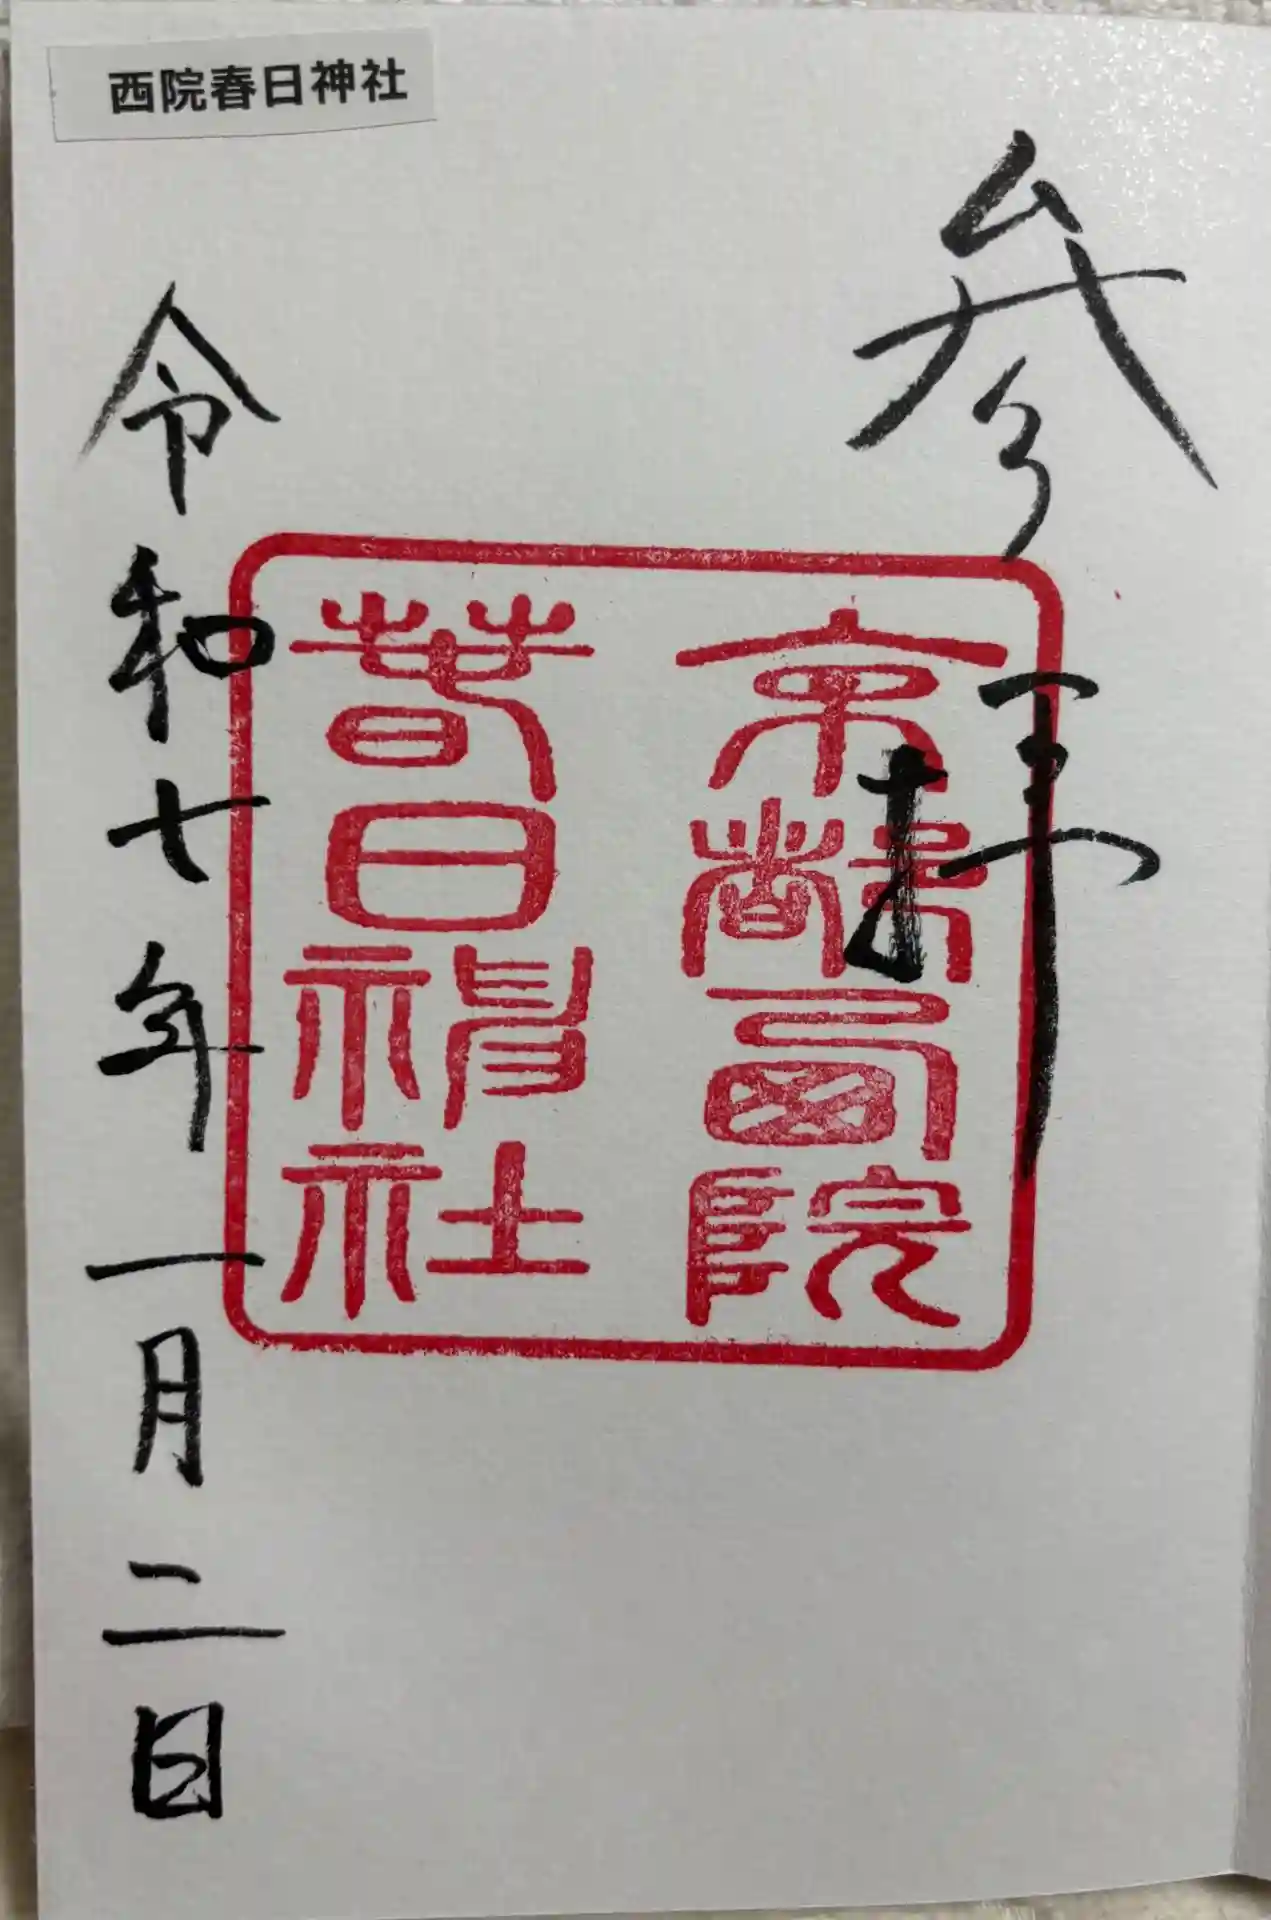 西院春日神社
参拝
京都西院
春日神社
令和七年一月二日